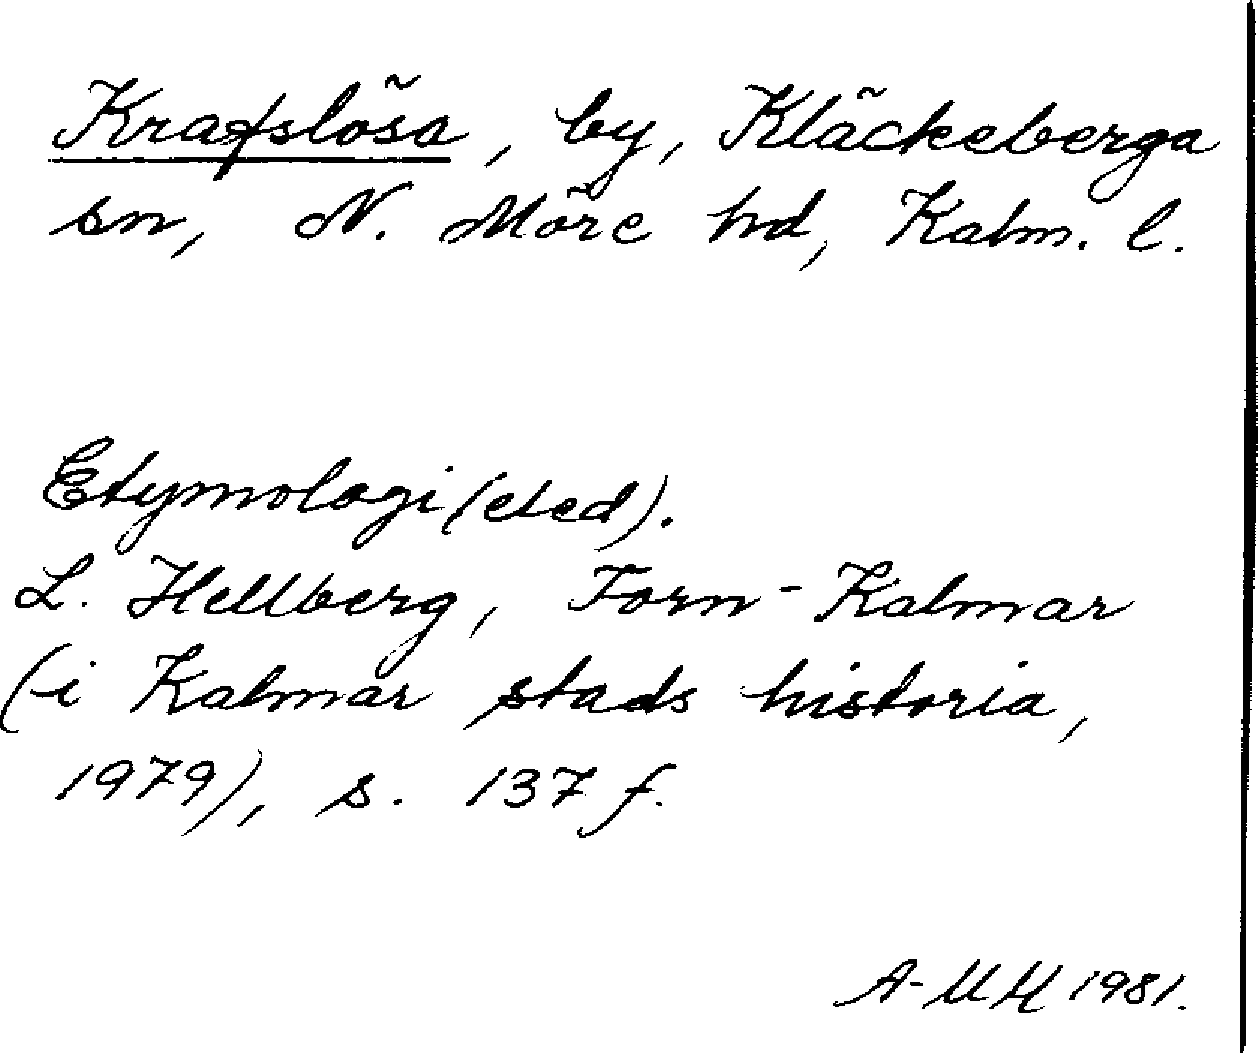 Krafslösa, by, Kläckeberga
sn, N. Möre hd, Kalm. l.
Etymologi (eled).
L. Hellberg, Forn-Kalmar
(i Kalmar stads historia,
1979), s. 137 f.
A-MH 1981.